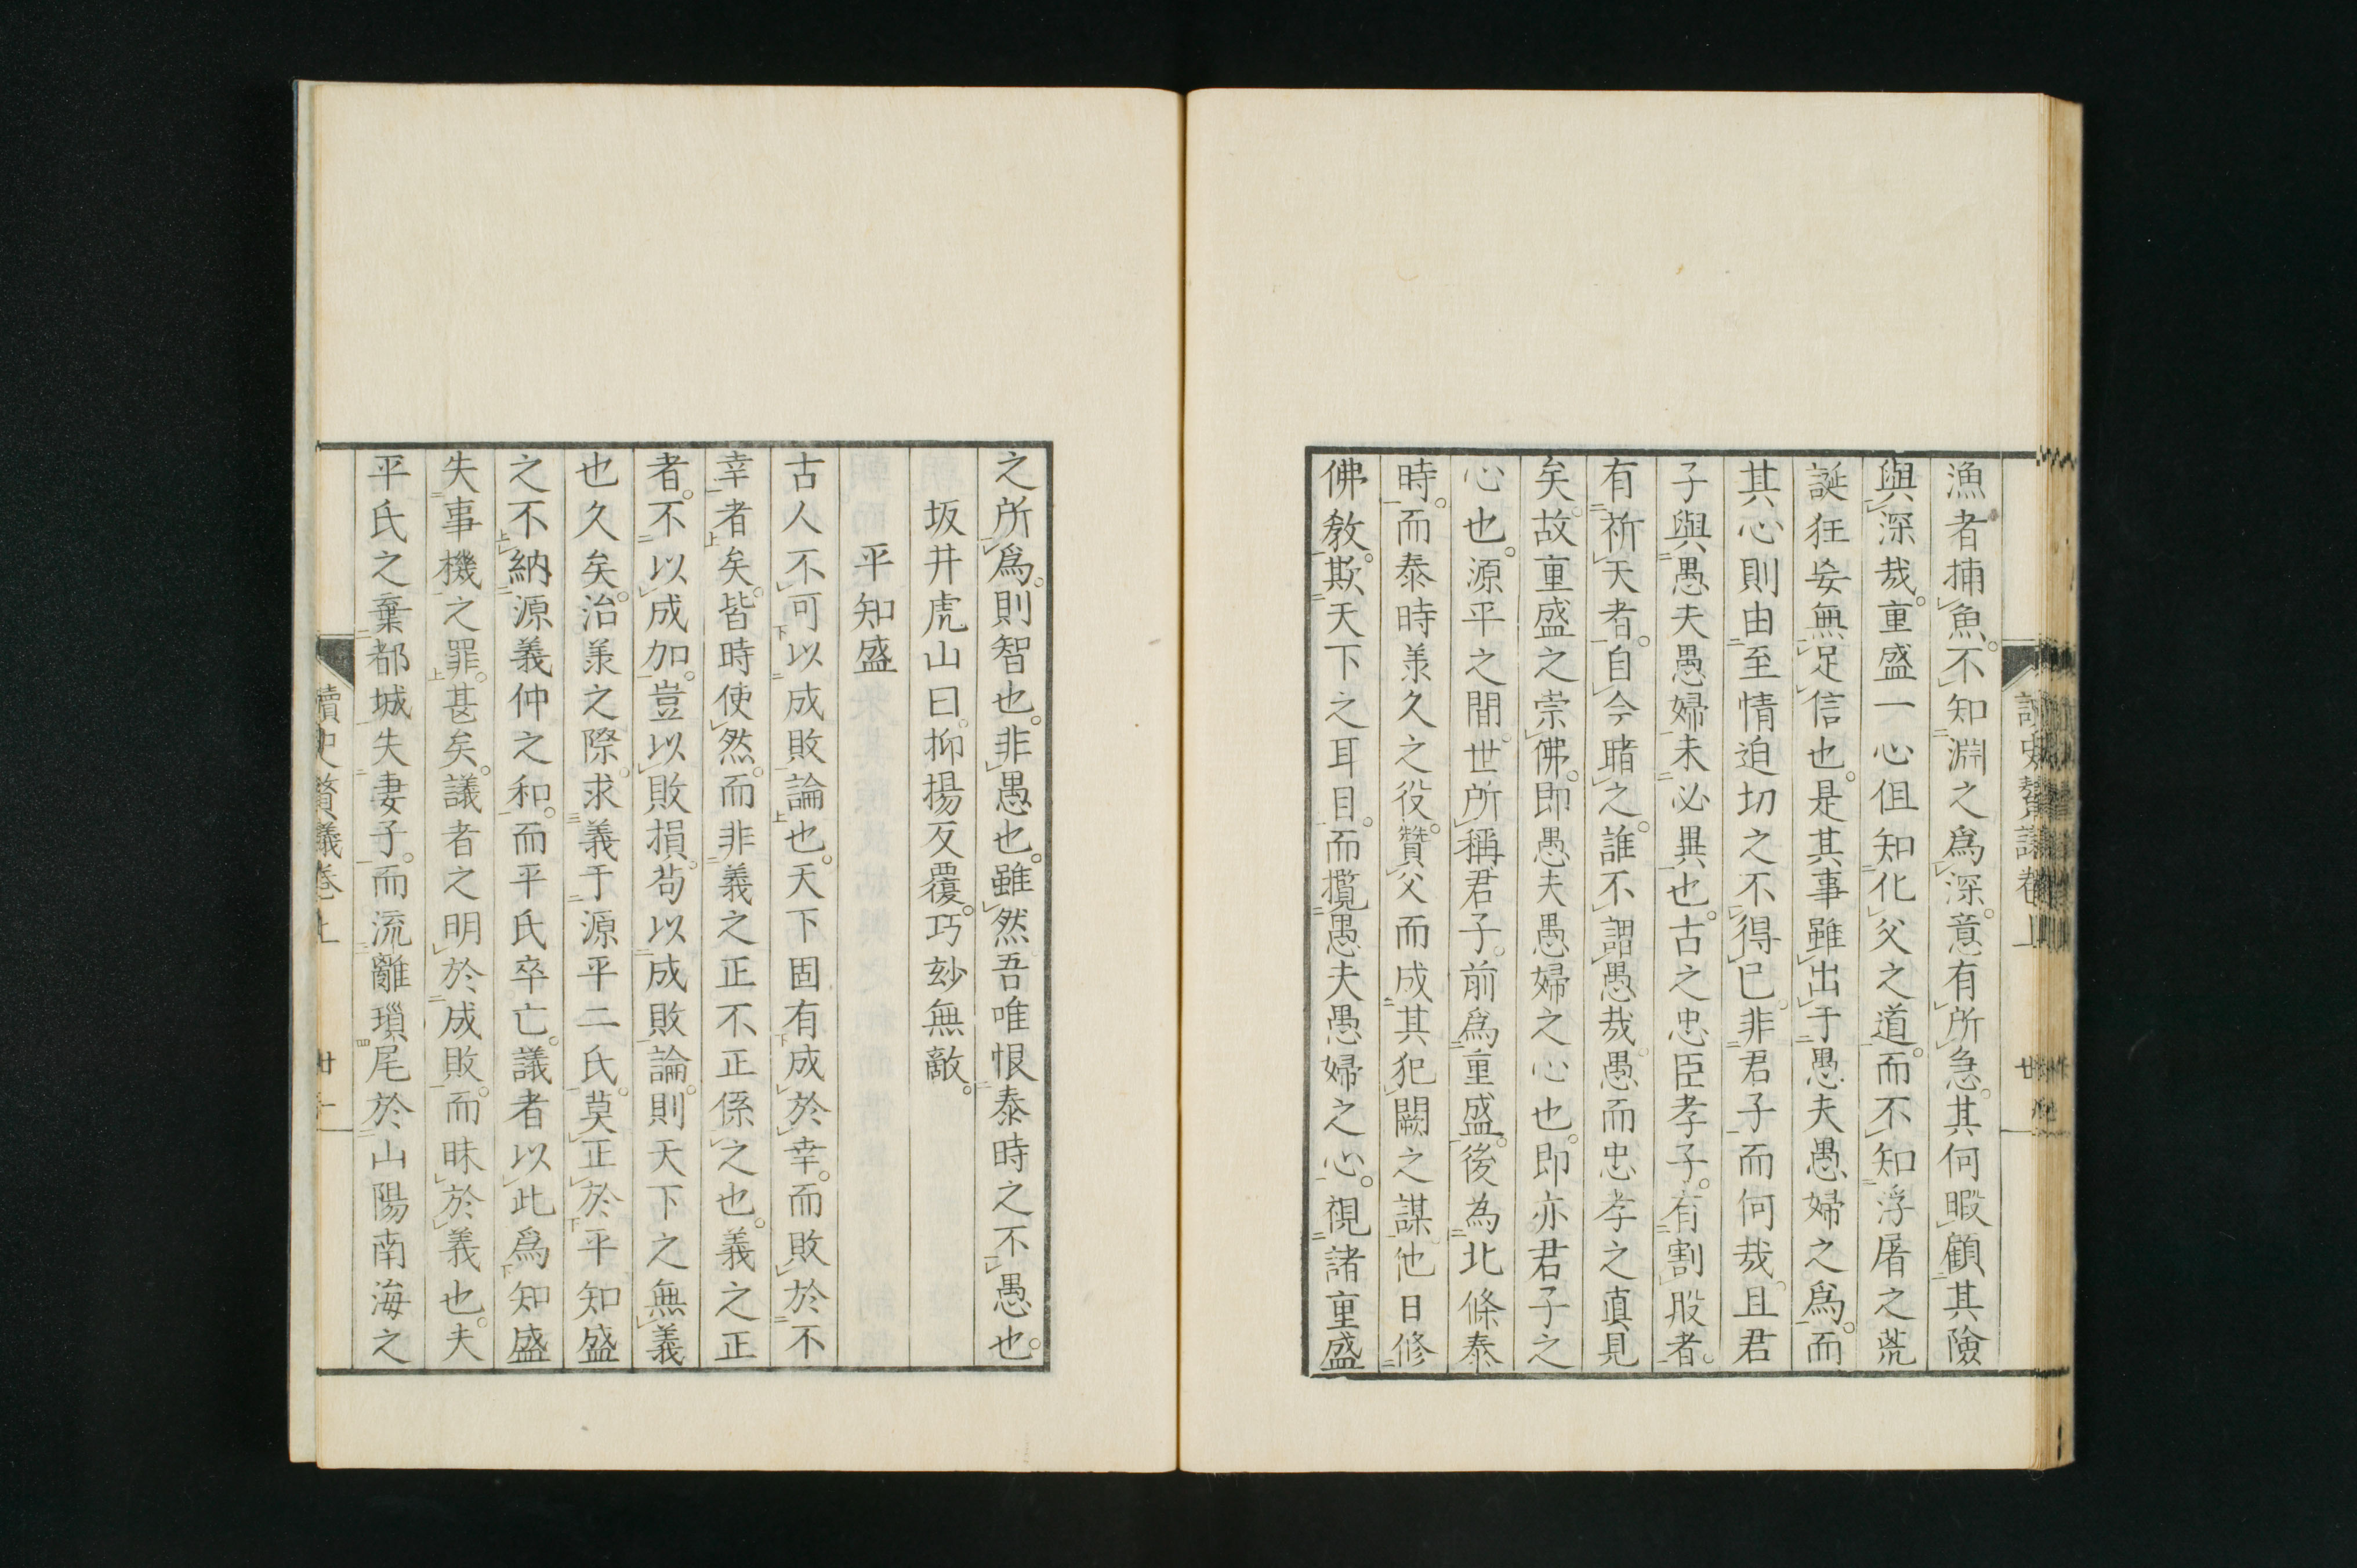 漁者捕魚。不知淵之爲深。意有所急。其何暇顧其險
與深哉。重盛一心但知化父之道。而不知浮屠之荒
誕狂妄無足信也。是其事雖出于愚夫愚婦之爲。而
其心則由至情迫切之不得已。非君子而何哉。且君
子與愚夫愚婦未必異也。古之忠臣孝子。有割股者。
有祈天者。自今睹之。誰不謂愚哉。愚而忠孝之眞見
矣。故重盛之崇佛。即愚夫愚婦之心也。即亦君子之
心也。源平之間。世所稱君子。前爲重盛。後為北條泰
時。而泰時羕久之役。贊父而成其犯闕之謀。他日修
佛教。欺天下之耳目。而攬愚夫愚婦之心。視諸重盛
之所爲。則智也。非愚也。雖然吾唯恨泰時之不愚也。
坂井虎山曰。抑揚反覆。巧玅無敵。
平知盛
古人不可以成敗論也。天下固有成於幸。而敗於不
幸者矣。皆時使然。而非義之正不正係之也。義之正
者。不以成加。豈以敗損。茍以成敗論。則天下之無義
也久矣。治羕之際。求義于源平二氏。莫正於平知盛
之不納源義仲之和。而平氏卒亡。議者以此爲知盛
失事機之罪。甚矣。議者之明於成敗。而昧於義也。夫
平氏之棄都城失妻子。而流離瑣尾於山陽南海之
讀史贅議卷上